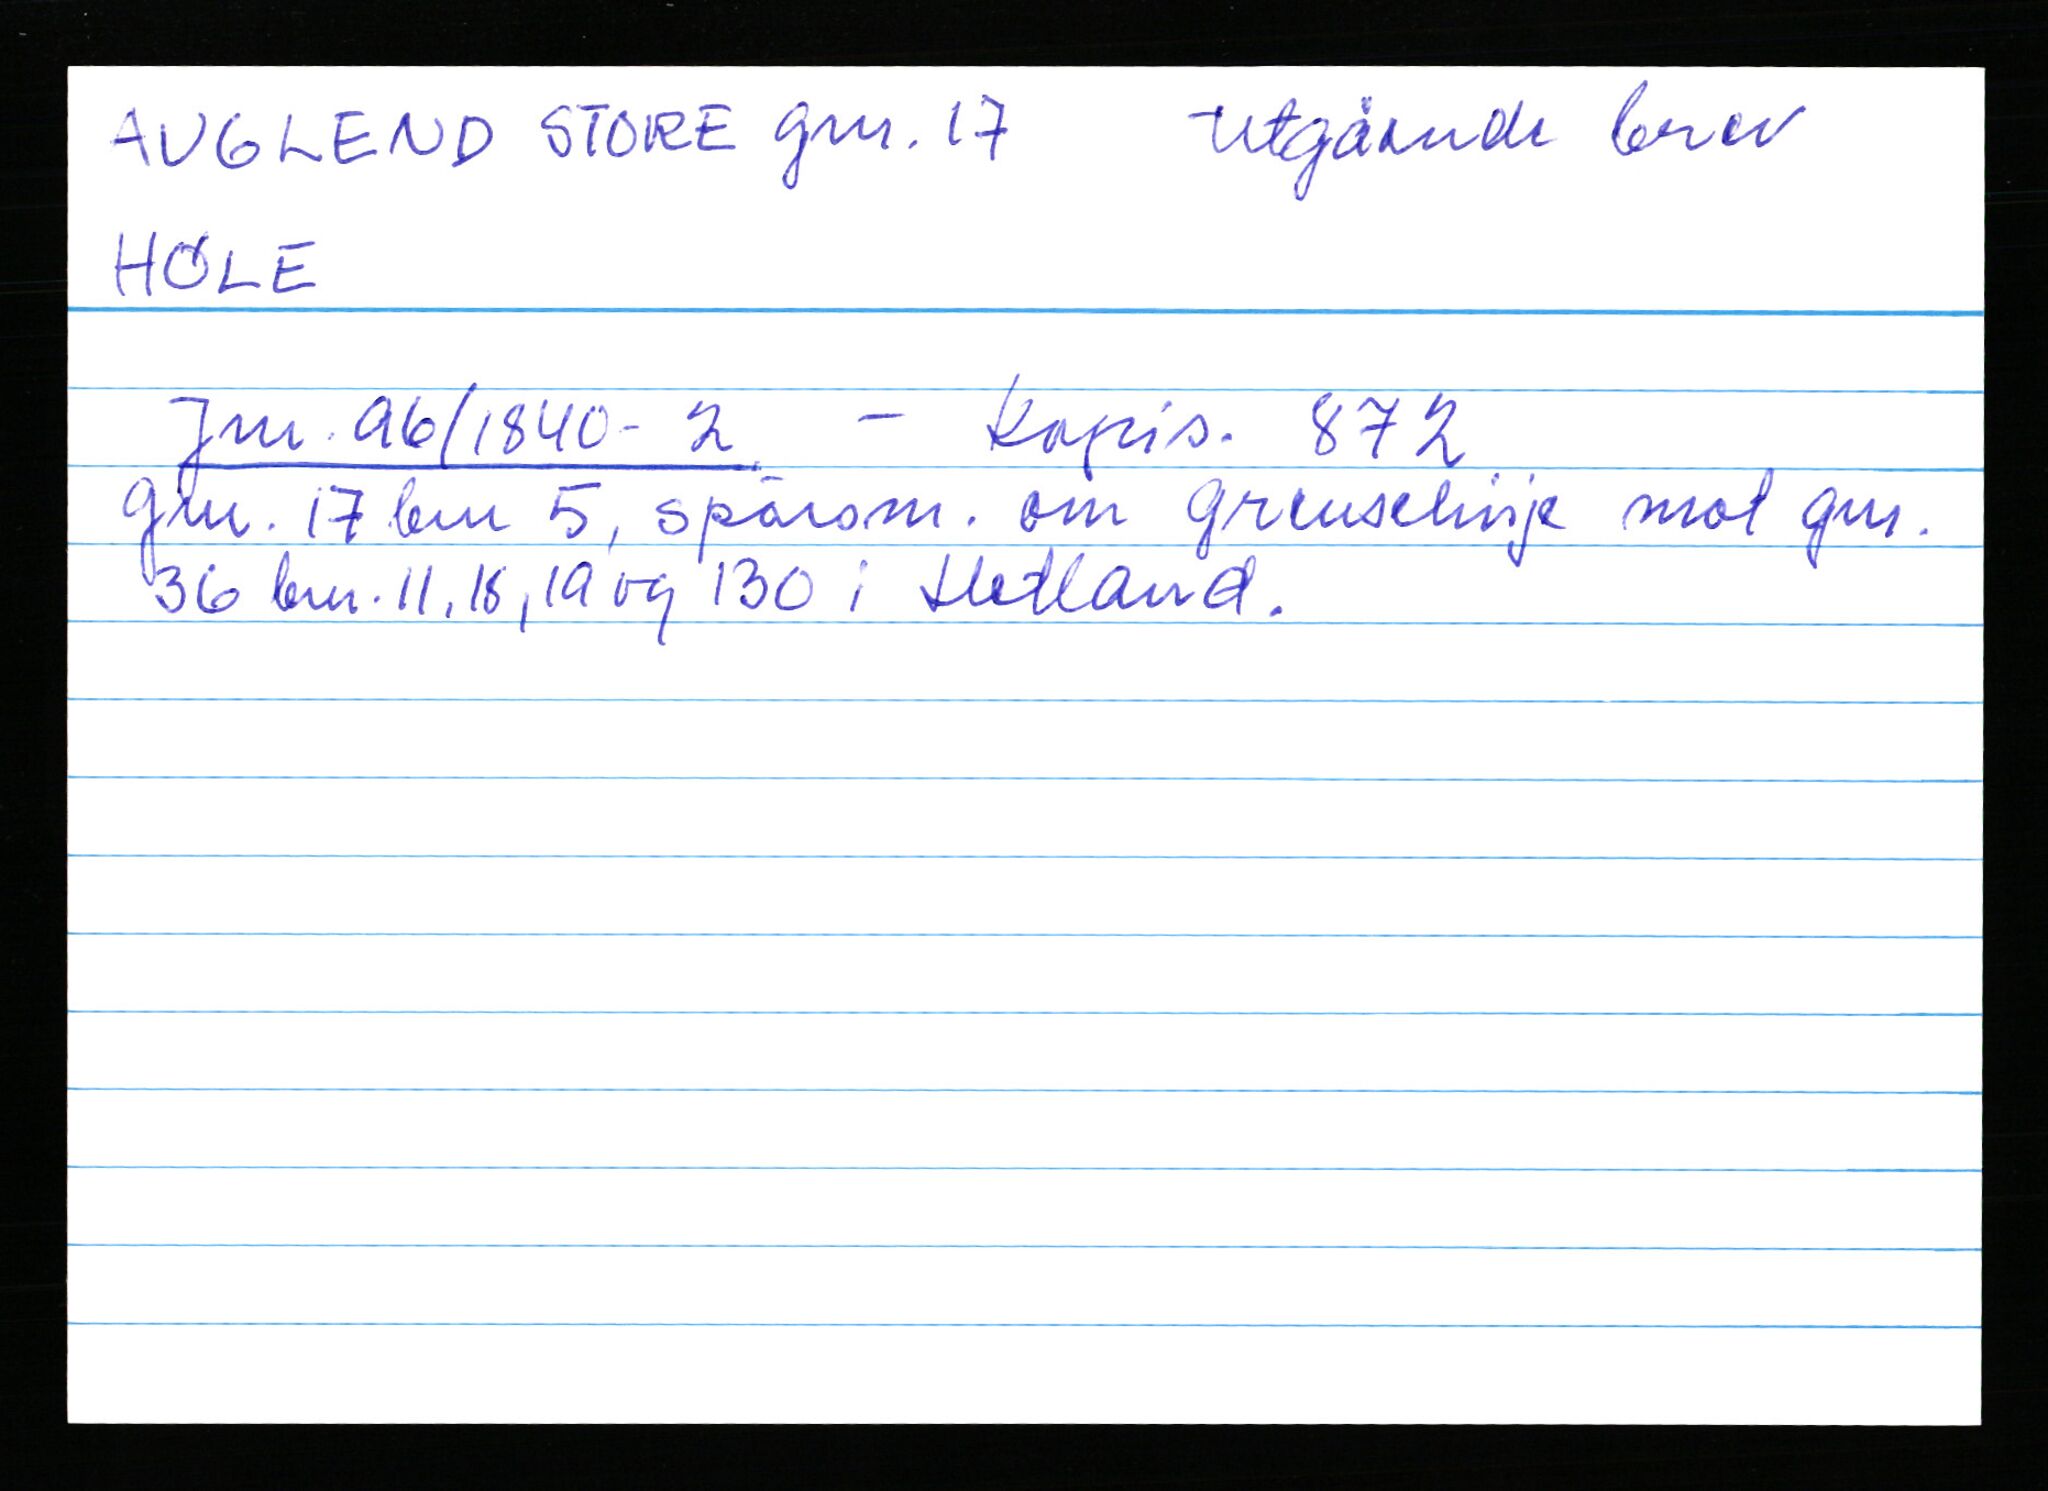 AUGLEND STORE gnr. 17 Utgående brev
HÖLE
Jnr. 96/1840-2 - Kopis. 872
gnr. 17 bnr 5, spørsm. om grenselinje mot gnr.
36 bnr. 11, 18, 19 og 130 i Hetland.